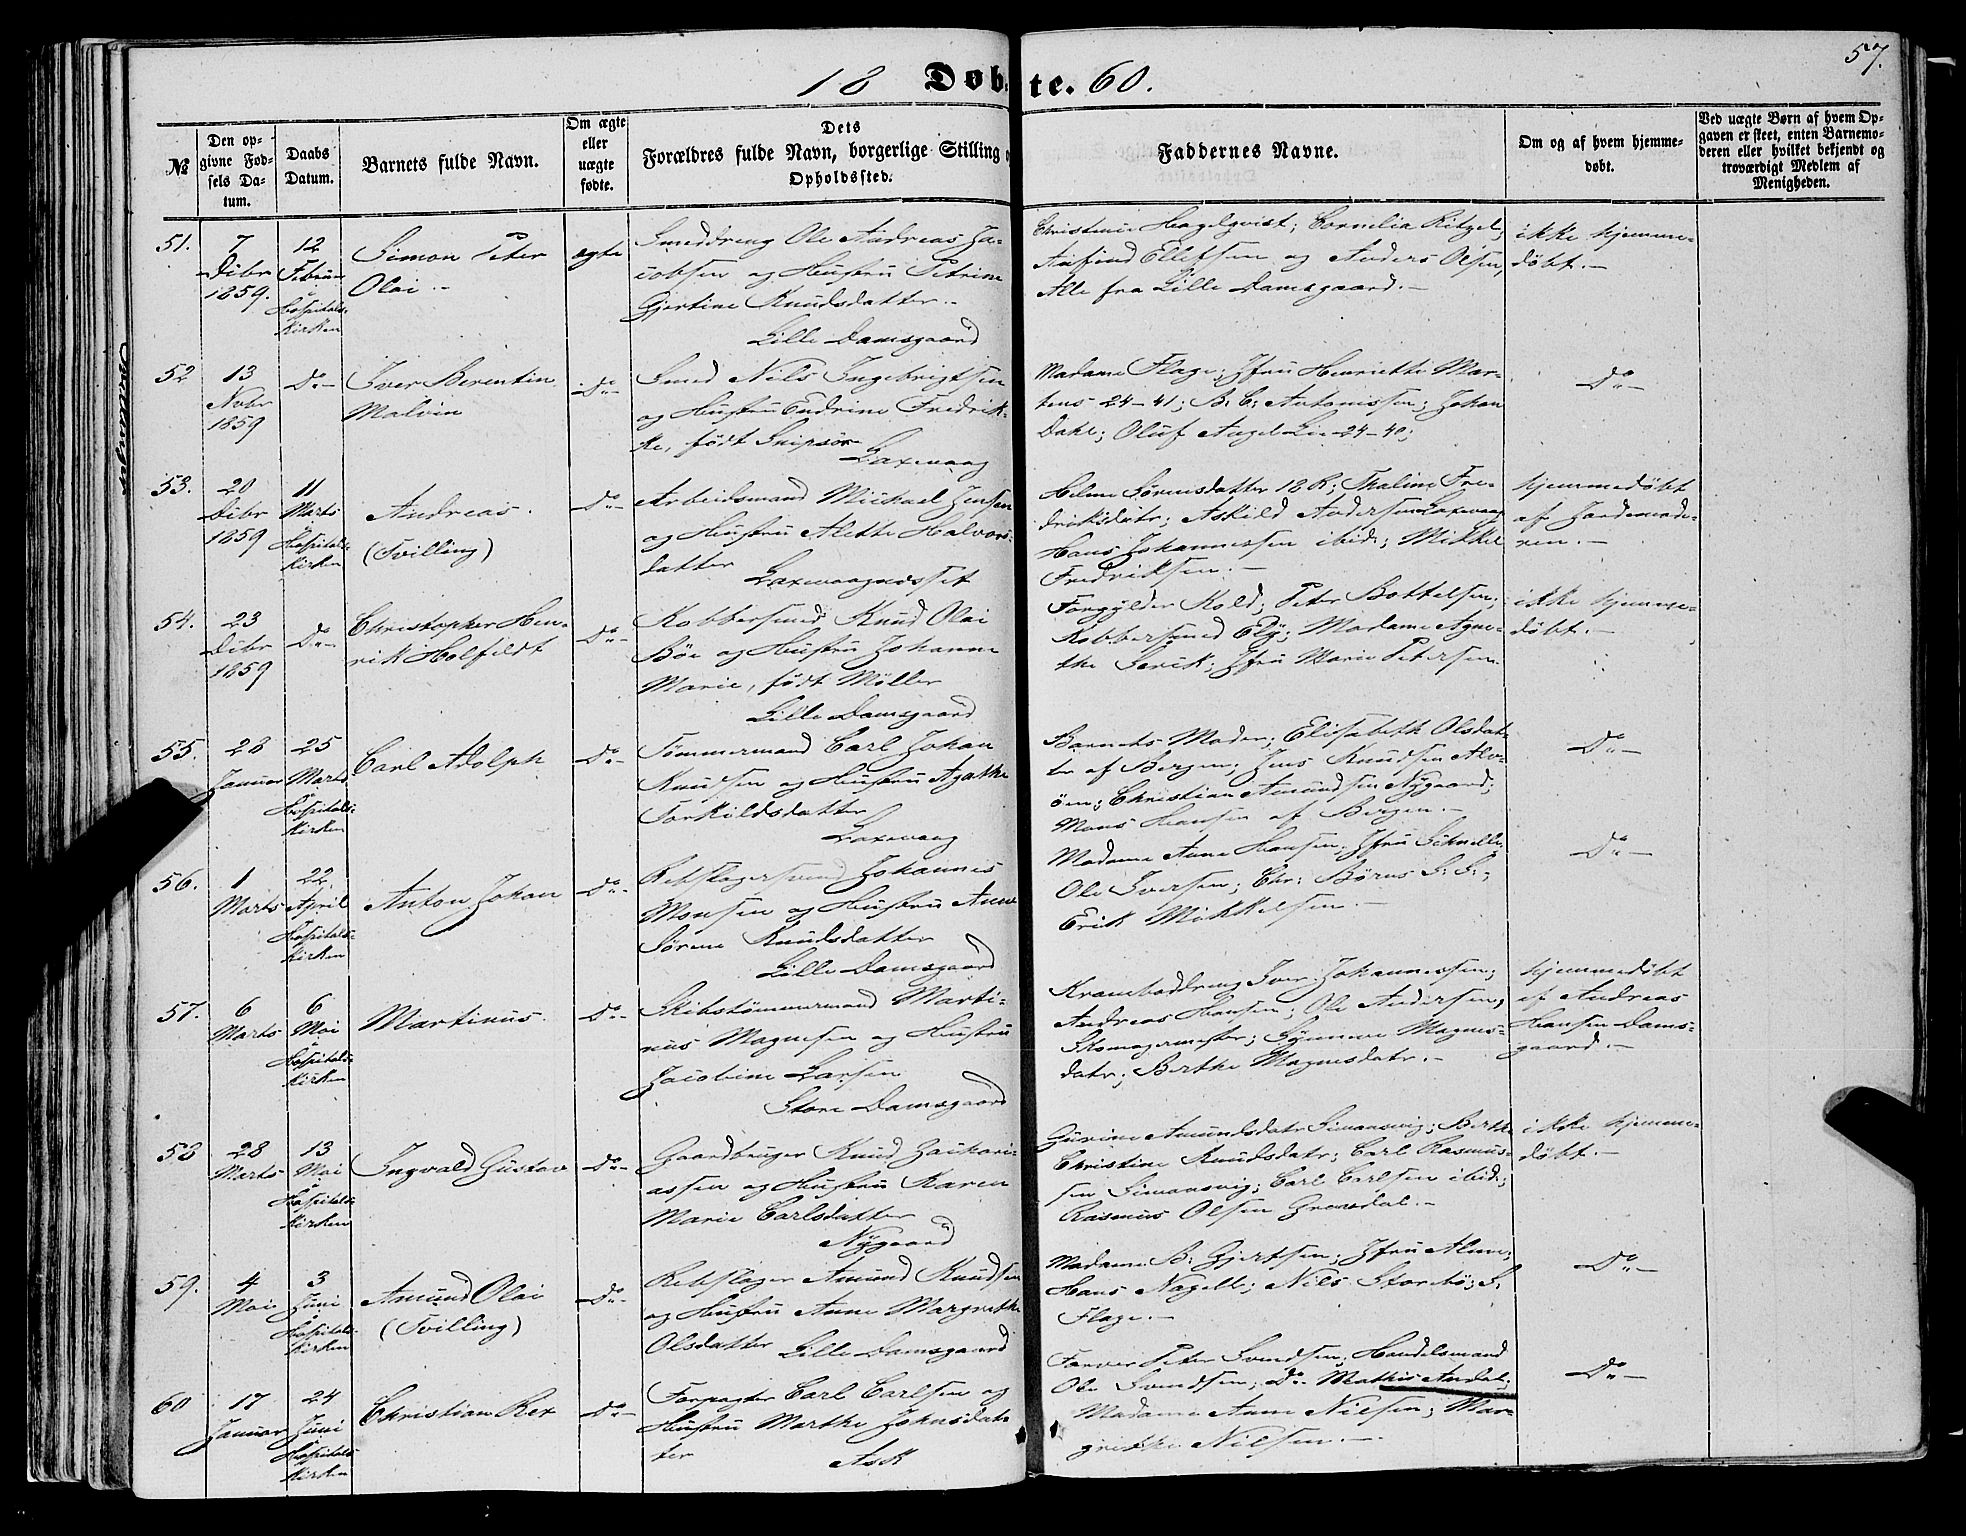 57.
18 Døbte. 60.
№
Den opgivne Fødsels Datum.
Daabs Datum.
Barnets fulde Navn.
Om ægte eller uægte fødte.
Dets Forældres fulde Navn, borgerlige Stilling o
Opholdssted.
Faddernes Navne.
Om og af hvem hjemmedøbt.
Ved uægte Børn af hvem Opgaven er skeet, enten Barnemoderen eller hvilket bekjendt og troværdigt Medlem af Menigheden.
51.
7
Dcbr
1859.
12
Februar
i
Hospitals-
kirken
Simon Peter
Olai.-
ægte
Smeddreng Ole Andreas Ja-
cobsen og Hustru Petrine
Gjertine Knudsdatter.-
Lille Damsgaard
Christine Hagelqvist; Cornelia Ritzel;
Anfind Ellefsen og Anders Olsen,
Alle fra Lille Damsgaard.-
ikke hjemme-
døbt.-
52
13
Nvbr
1859
Do-
Iver Berentin
Malvin
Do-
Smed Nils Ingebrigtsen
og Hustru Endrine Fredrik-
ke, født Snipsør
Laxevaag
Madame Flage; Jfru Henriette Mar-
tens 24-41; B: C: Antonissen; Johan
Dahl; Oluf Angel Lie 24-40;
Do-
53.
20
Dcbr
1859
11
Marts
i
Hospitals-
kirken
Andreas.
(Tvilling)
Do-
Arbeidsmand Mickael Jensen
og Hustru Alette Halvors-
datter
Laxevaagnesset
Helene Sørensdatter 18 R; Maline Fre-
driksdatr; Askild Andersen Laxevaag
Hans Johannessen ibid; Mikkel
Fredriksen.-
hjemmedøbt
af Jordemode-
ren.-
54.
23
Dcbr
1859
Do-
Christopher Hen-
rik Holfeldt
Do-
Kobbersmed Knud Olai
Böe og Hustru Johanne
Marie, født Møller
Lille Damsgaard
Forgylder Kold; Peter Bottelsen;
Kobbersmed Elg; Madame Agne-
the Gerik; Jfru Marie Petersen.
ikke hjemme-
døbt.-
55.
28
Januar
25
Marts
i
Hospitals-
kirken
Carl Adolph
Do-
Tømmermand Carl Johan
Knudsen og Hustru Agathe
Torkildsdatter
Laxevaag
Barnets Moder; Elisabeth Olsdat-
ter af Bergen; Jens Knudsen Alv-
øen; Christian Amundsen Nygaard;
Mons Hansen af Bergen.-
Do-
56.
1
Marts
22
April
Hospitals-
kirken
Anton Johan
Do-
Rebslagersvend Johannes
Monsen og Hustru Anne
Sørene Knudsdatter
Lille Damsgaard
Madame Anne Hansen; Jfru Schnelle;
Ole Iversen; Chr: Børus S: S:;
Erik Mikkelsen.-
Do-
57.
6
Marts
6
Mai
i
Hospitals-
kirken
Martinus.
Do-
Skibstømmermand Marti-
nus Magnesen og Hustru
Jacobine Larsen
Store Damsgaard
Kramboddreng Iver Johannessen;
Andreas Hansen; Ole Andersen,
Skomagermester; Synneve Magnes-
datr; Berthe Magnesdatr.-
hjemmedøbt
af Andreas
Hansen Dams-
gaard.-
58
28
Marts
13
Mai
i
Hospitals-
kirken
Ingvald Gustav
Do-
Gaardbruger Knud Zacari-
assen og Hustru Karen
Marie Carlsdatter
Nygaard
Gurine Amundsdatr Simonsvig; Berthe
Christine Knudsdatr; Carl Rasmus-
sen Simonsvig; Carl Carlsen ibid;
Rasmus Olsen Gravdal.-
ikke hjemme-
døbt.-
59.
4
Mai
3
Juni
Hospitals-
kirken
Amund Olai
(Tvilling)
Do-
Rebslager Amund Knudsen
og Hustru Anne Margrethe
Olsdatter Lille Damsgaard
Madame B: Gjertsen; Jfru Alme;
Hans Nagell; Nils Storebö; S:
Flage.-
Do-
60
17
Januar
24
Juni
Hospitals-
kirken
Christian Rex
Do-
Forpagter Carl Carlsen og
Hustru Marthe Johnsdat-
ter
Ask
Farver Peter Svendsen; Handelsmand
Ole Svendsen; Do Mathis Andal;
Madame Anne Nielsen; Mar-
grethe Nielsen.-
Do-